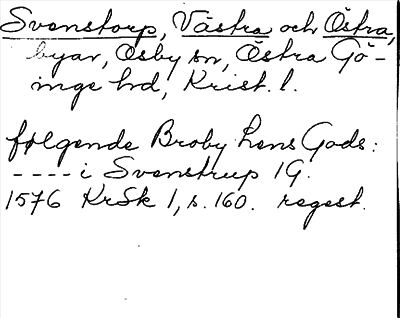 Svenstorp, Västra och Östra,
byar, Osby sn, Östra Gö-
inge hd, Krist. l.
følgende Broby Lens Gods:
---- i Svenstrup 1G.
1576 KrSk 1, s. 160. regest.